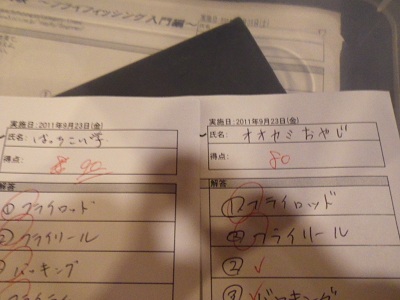 ～フライフィッシング入門編～
実施日:2011年9月23日(金)
氏名: ばっちこい学
得点: 90
解答
① フライロッド
② フライリール
③ バッキング
実施日:2011年9月23日(金)
氏名: オオカミおやじ
得点: 80
解答
① フライロッド
② フライリール
②
③ バッキング